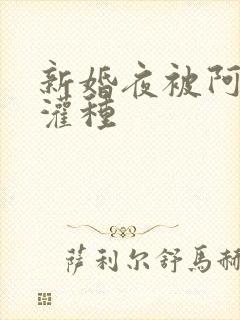 新婚夜被阿
灌种
萨利尔舒马赫